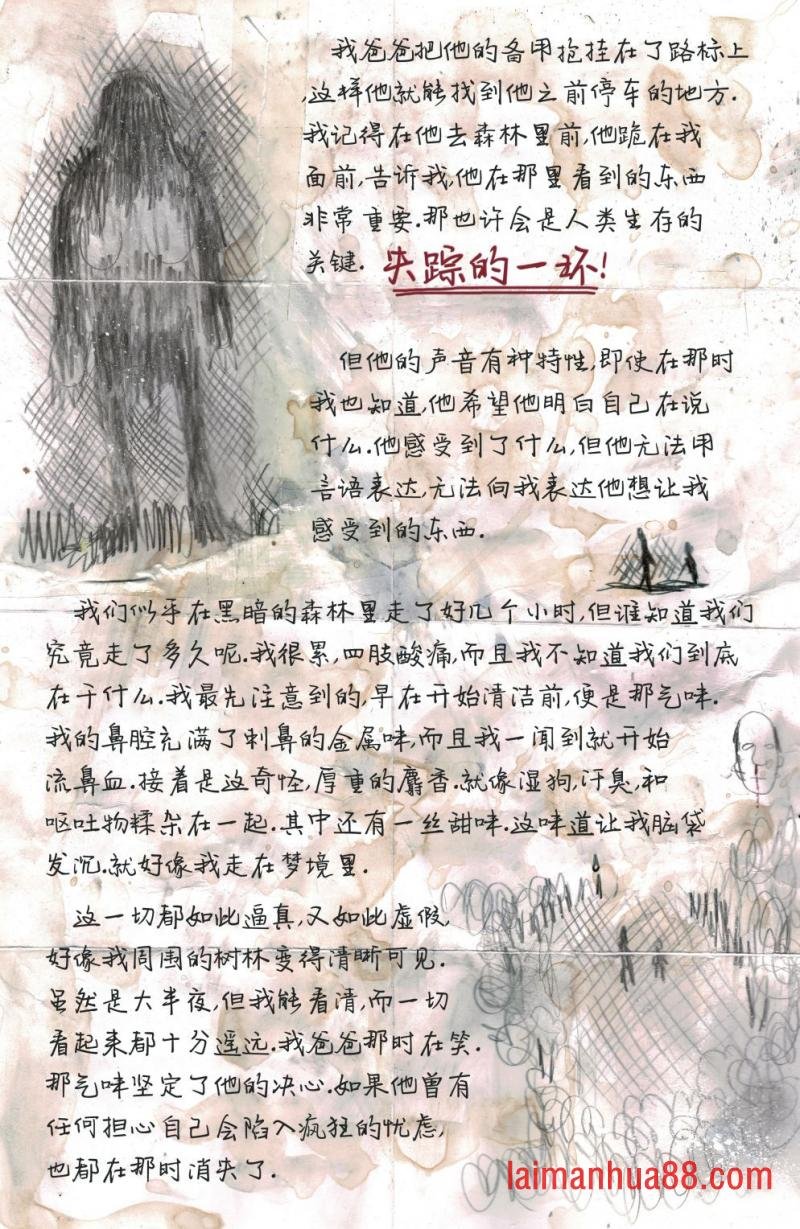 我爸爸把他的备用枪挂在了路标上
,这样他就能找到他之前停车的地方.
我记得在他去森林里前,他跪在我
面前,告诉我,他在那里看到的东西
非常重要.那也许会是人类生存的
关键. 失踪的一环!
但他的声音有种特性,即使在那时
我也知道,他希望他明白自己在说
什么.他感受到了什么,但他无法用
言语表达,无法向我表达他想让我
感受到的东西.
我们似乎在黑暗的森林里走了好几个小时,但谁知道我们
究竟走了多久呢.我很累,四肢酸痛,而且我不知道我们到底
在干什么.我最先注意到的,早在开始清洁前,便是那气味.
我的鼻腔充满了刺鼻的金属味,而且我一闻到就开始
流鼻血.接着是这奇怪,厚重的麝香.就像湿狗,汗臭,和
呕吐物糅杂在一起.其中还有一丝甜味.这味道让我脑袋
发沉.就好像我走在梦境里.
这一切都如此逼真,又如此虚假,
好像我周围的树林变得清晰可见.
虽然是大半夜,但我能看清,而一切
看起来都十分遥远.我爸爸那时在笑.
那气味坚定了他的决心.如果他曾有
任何担心自己会陷入疯狂的忧虑,
也都在那时消失了.
laimanhua88.com